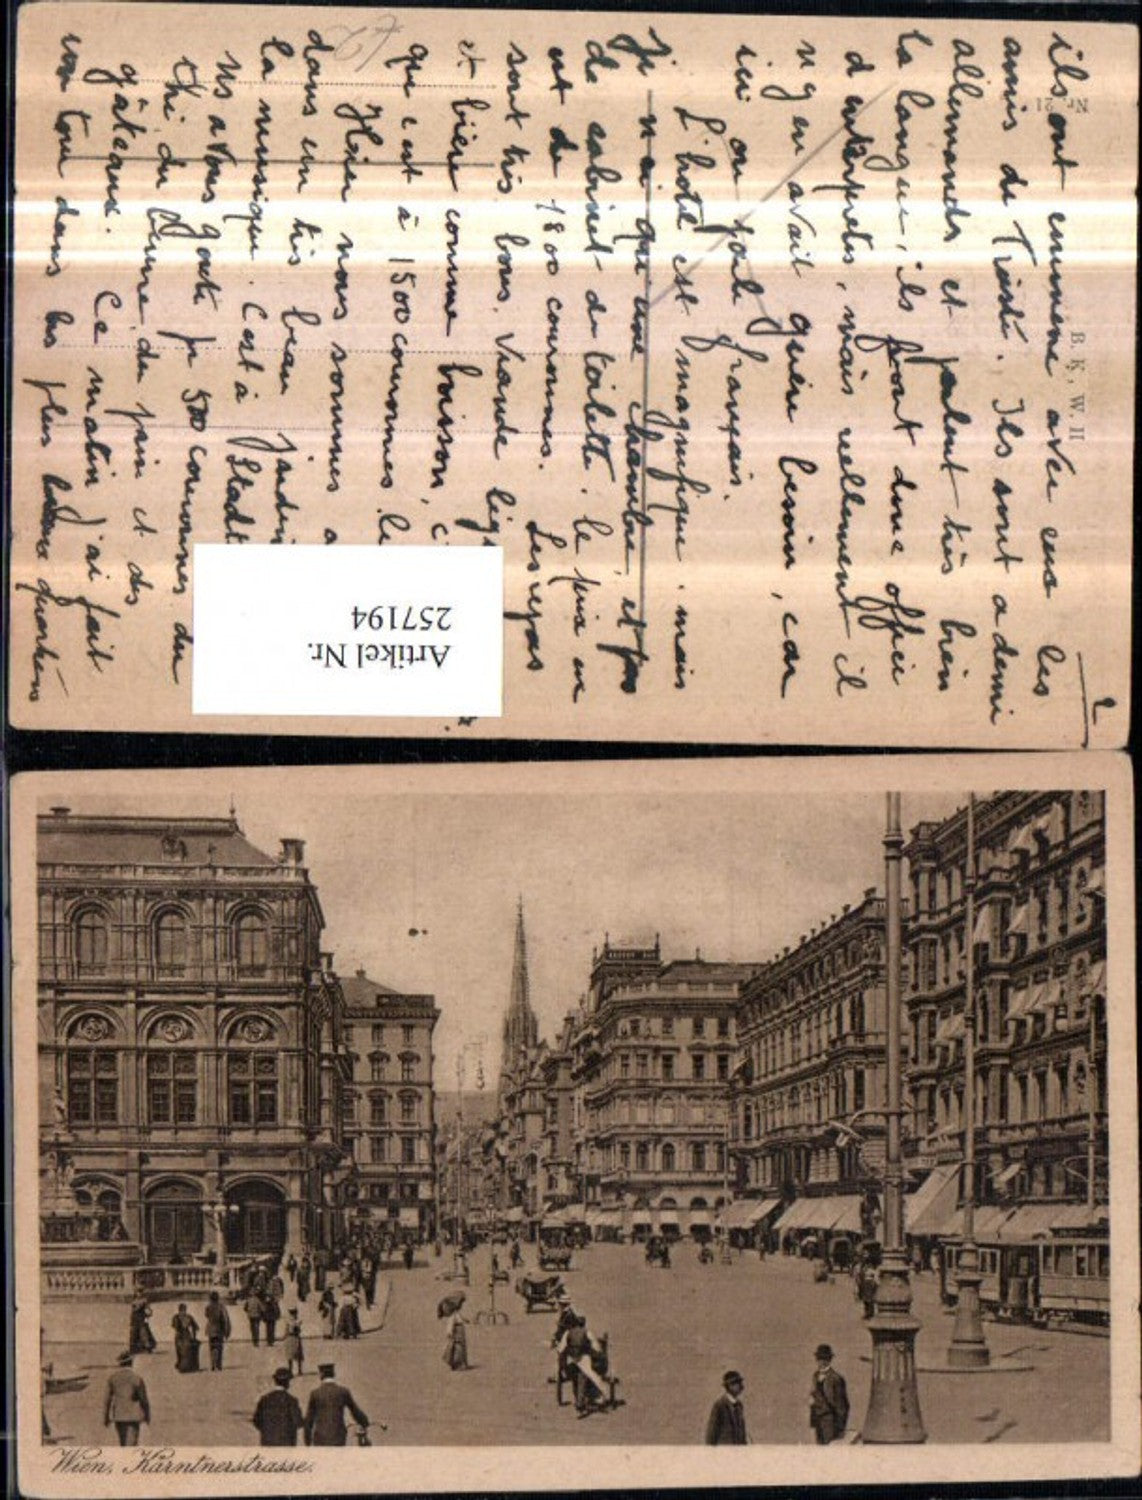 2
ils ont emmené avec eux les
amis de Trieste. Ils sont a demi
allemands et parlent très bien
la langue, ils font donc office
d'interpretes, mais reellement il
n'y en avait guère besoin, car
ici on parle français.
L'hotel est magnifique. mais
je n'ai qu'une chambre, et pas
de cabinet de toilette. le prix en
est de 1800 couronnes. Les repas
sont très bons. Viande lég
et bière comme boisson, c
que c'est à 1500 couronnes le
Hier nous sommes a
dans un très beau jardin
la musique. C'est à Stadt
ns avons gouté pr 500 couronnes. du
thé, du beurre, du pain et des
gâteaux. Ce matin j'ai fait
un tour dans les plus beaux quartiers
Nr. 21
B. K. W. II
Artikel Nr.
257194
Wien, Kärntnerstrasse.